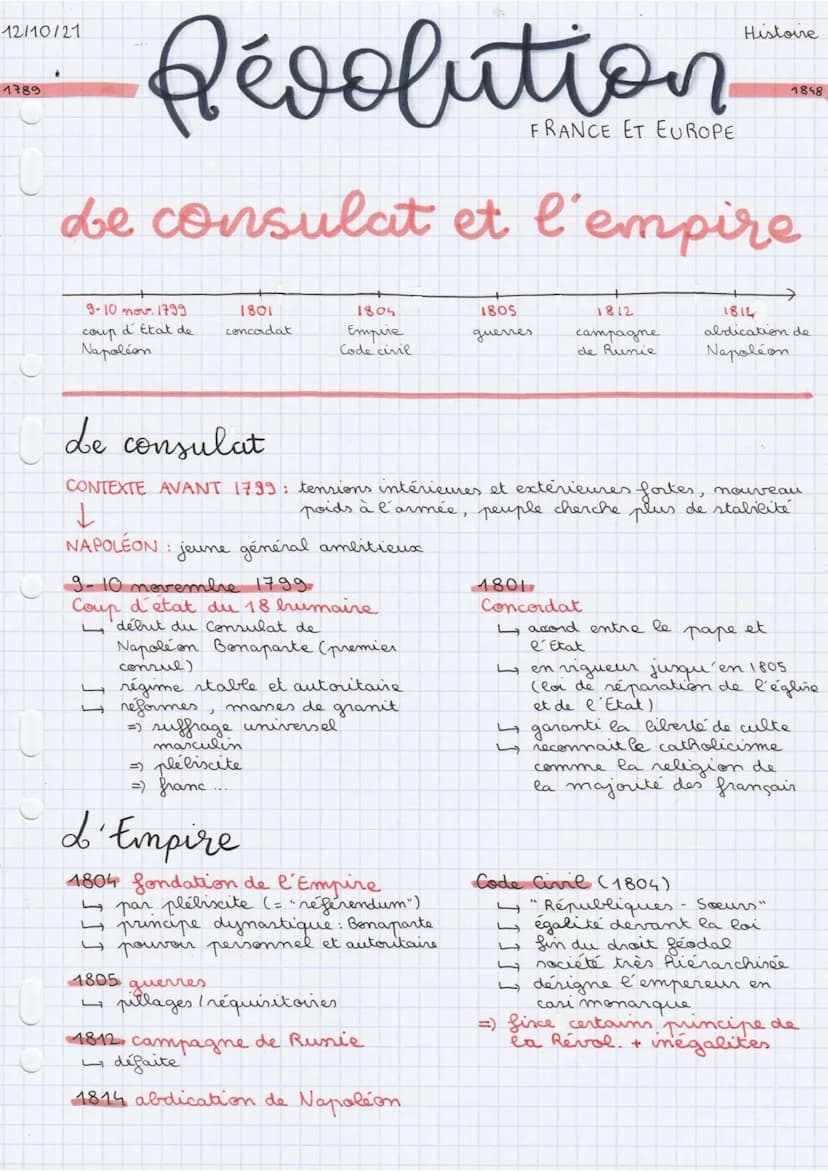 12/10/21
Histoire
1789
Révolution
1848
FRANCE ET EUROPE
Le consulat et l'empire
9-10 nov. 1799
coup d'État de
Napoléon
1801
concordat
1804
Empire
Code civil
1805
guerres
1812
campagne
de Russie
1814
abdication de
Napoléon
Le consulat
CONTEXTE AVANT 1799 : tensions intérieures et extérieures fortes, nouveau
poids à l'armée, peuple cherche plus de stabilité
↓
NAPOLÉON : jeune général ambitieux
9-10 novembre 1799
Coup d'état du 18 brumaire
↳ début du Consulat de
Napoléon Bonaparte (premier
consul)
↳ régime stable et autoritaire
↳ réformes, masses de granit
=> suffrage universel
masculin
=> plébiscite
=> franc ...
1801
Concordat
↳ acord entre le pape et
l'État
↳ en vigueur jusqu'en 1805
(loi de séparation de l'église
et de l'État)
↳ garanti la liberté de culte
↳ reconnait le catholicisme
comme la religion de
la majorité des français
L'Empire
1804 fondation de l'Empire
↳ par plébiscite (= "référendum")
↳ principe dynastique : Bonaparte
↳ pouvoir personnel et autoritaire
1805 guerres
↳ pillages / réquisitoires
1812 campagne de Russie
↳ défaite
1814 abdication de Napoléon
Code Civil (1804)
↳ "Républiques - Sœurs"
↳ égalité devant la loi
↳ fin du droit féodal
↳ société très hiérarchisée
↳ désigne l'empereur en
casi monarque
=> fixe certains principe de
la Révol. + inégalités